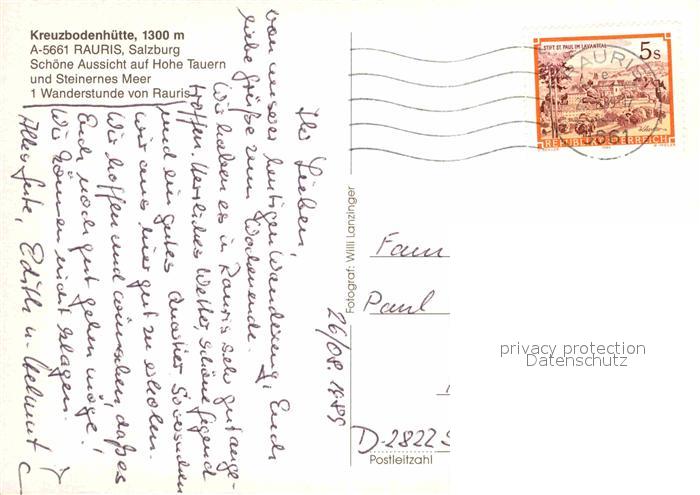 Kreuzbodenhütte, 1300 m
A-5661 RAURIS, Salzburg
Schöne Aussicht auf Hohe Tauern
und Steinernes Meer
1 Wanderstunde von Rauris
Ihr Lieben,
von unserer heutigen Wanderung, Euch
liebe Grüße zum Wochenende.
Wir haben es in Rauris sehr gut ange-
troffen. Herrliches Wetter, schöne Gegend
und ein gutes Quartier
wir uns hier gut zu erholen.
Wir hoffen und wünschen, daß es
Euch noch gut gehen möge!
Wir können nicht klagen.
Alles Gute, Edith u. Helmut
Fotograf: Willi Lanzinger
26/08. 1989
STIFT ST. PAUL IM LAVANTTAL
5s
REPUBLIK ÖSTERREICH
RAURIS
5661
Fam
Paul
D-2822
Postleitzahl
privacy protection
Datenschutz